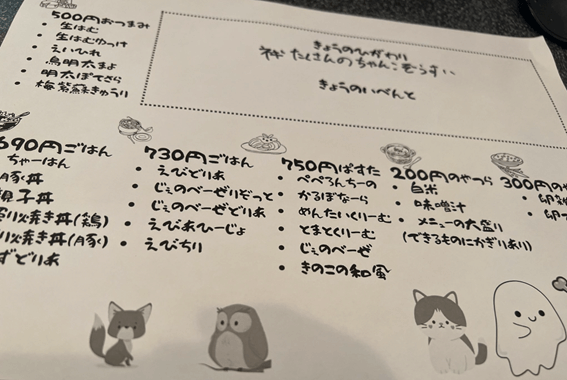 500円おつまみ
・ 生はむ
・ 生はむゆっけ
・ えいひれ
・ 鳥明太まよ
・ 明太ぽてさら
・ 梅紫蘇きゅうり
きょうのひがわり
たくさんのちゃんこぞうすい
きょうのいべんと
690円ごはん
ちゃーはん
豚丼
親子丼
照り焼き丼(鶏)
照り焼き丼(豚)
ちーずどりあ
730円ごはん
・ えびどりあ
・ じぇのべーぜりぞっと
・ じぇのべーぜどりあ
・ えびあひーじょ
・ えびちり
750円ぱすた
・ ぺぺろんちーの
・ かるぼなーら
・ めんたいくりーむ
・ とまとくりーむ
・ じぇのべーぜ
・ きのこの和風
200円のやつら
・ 白米
・ 味噌汁
・ メニューの大盛り
(できるものにかぎりあり)
300円の